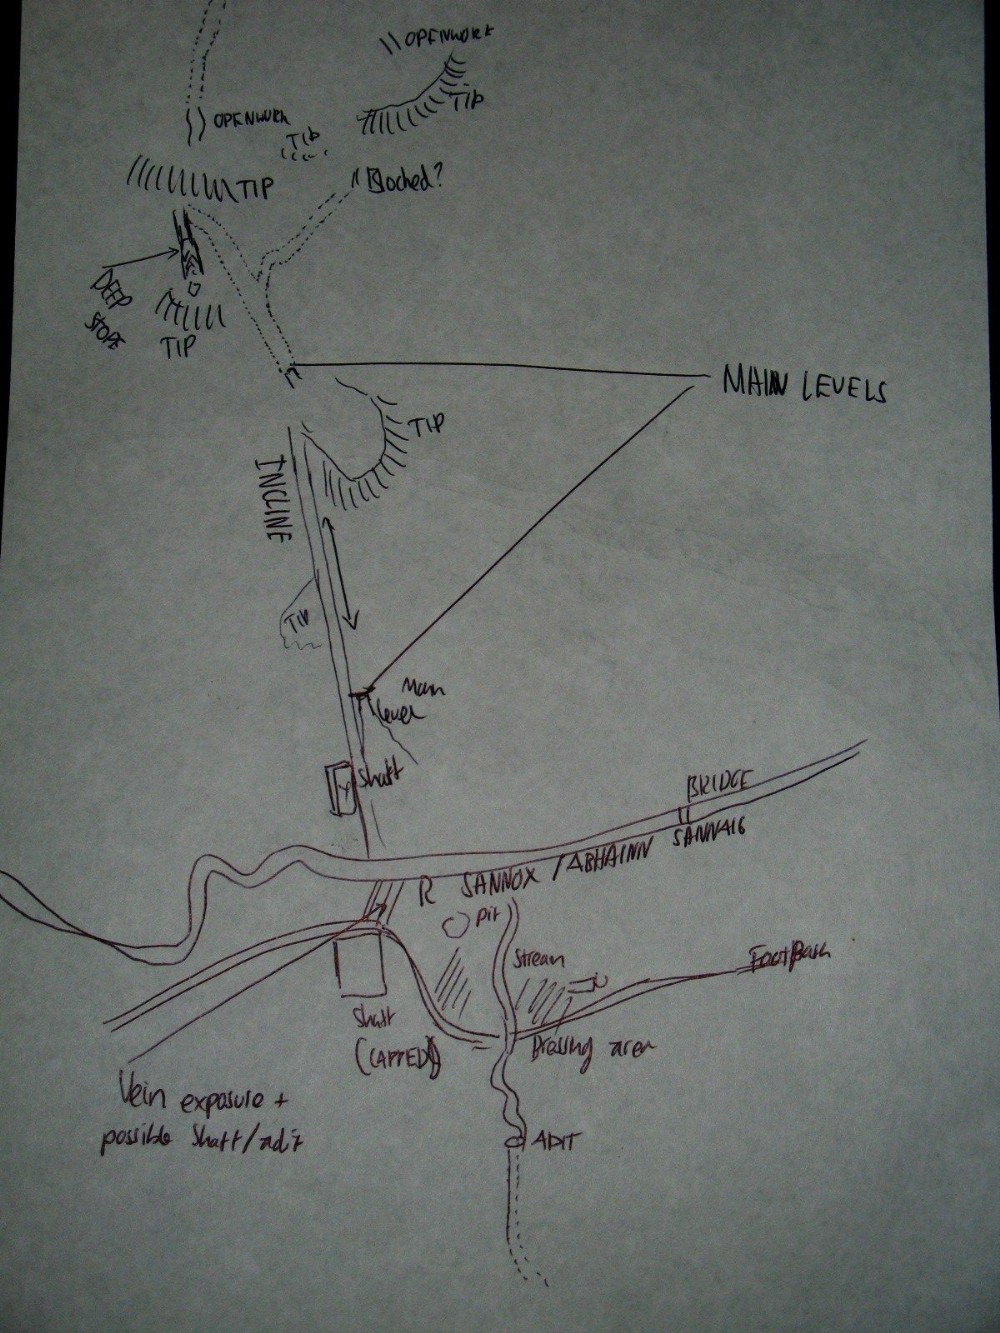 OPENWORK
OPENWORK
TIP
TIP
TIP
Blocked?
DEEP
STOPE
TIP
MAIN LEVELS
TIP
INCLINE
TIP
Main
level
Shaft
BRIDGE
R SANNOX / ABHAINN SANNAIG
Pit
Stream
FootPath
Shaft
(CAPPED)
Dressing area
Vein exposure +
possible Shaft/adit
ADIT